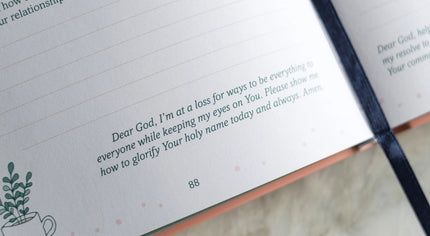 how
ur relationship
Dear God, I'm at a loss for ways to be everything to
everyone while keeping my eyes on You. Please show me
how to glorify Your holy name today and always. Amen.
88
Dear God, help
my resolve to
Your comm